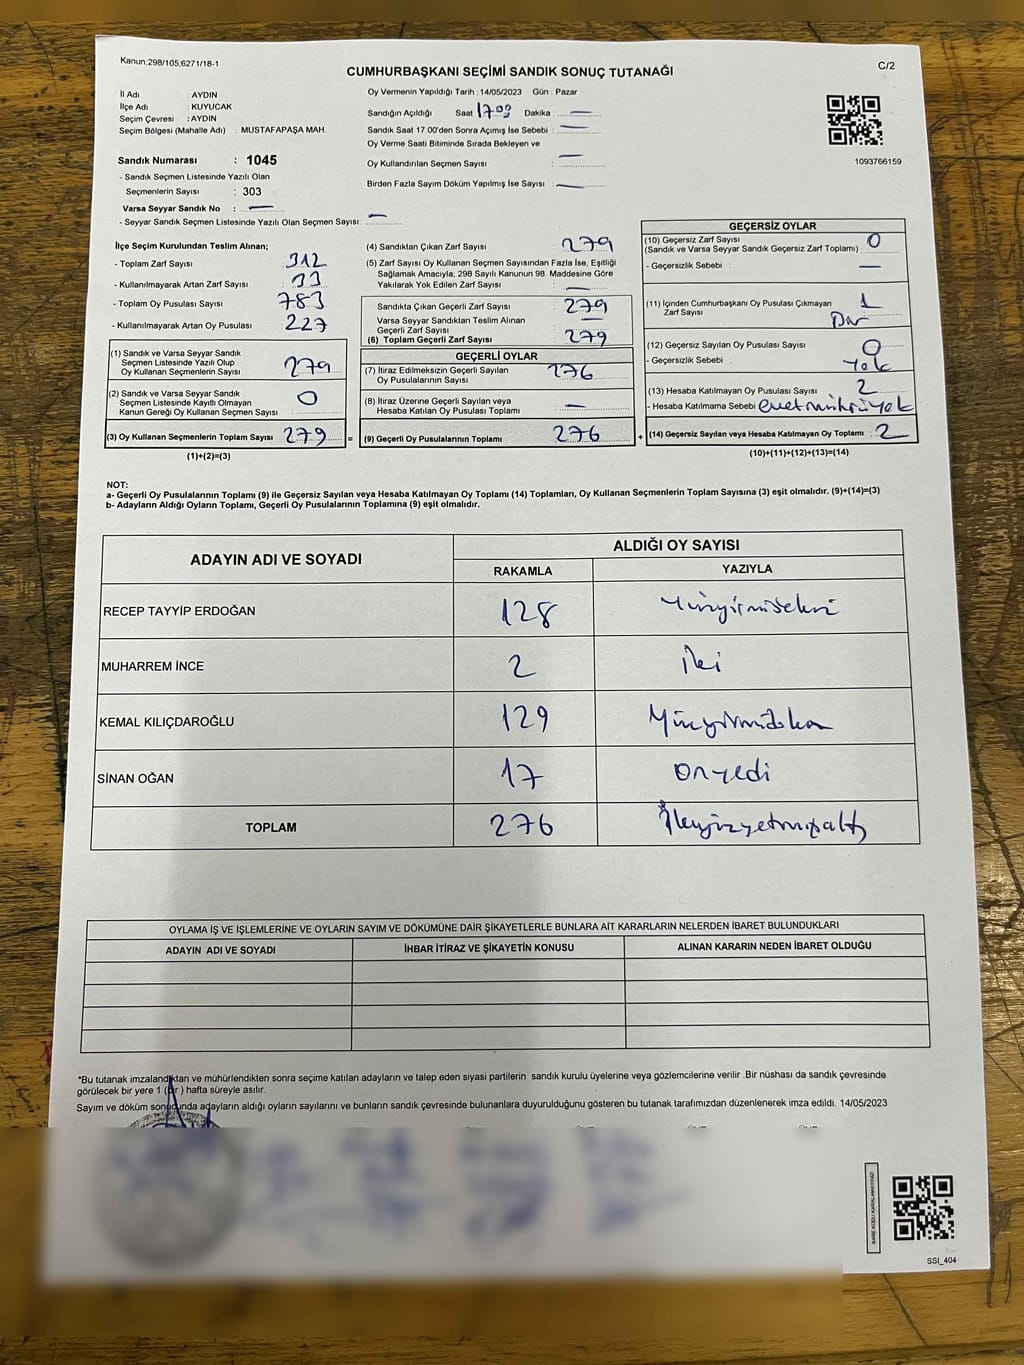 Kanun;298/105;6271/18-1
C/2
CUMHURBAŞKANI SEÇİMİ SANDIK SONUÇ TUTANAĞI
İl Adı : AYDIN
İlçe Adı : KUYUCAK
Seçim Çevresi : AYDIN
Seçim Bölgesi (Mahalle Adı) : MUSTAFAPAŞA MAH.
Sandık Numarası : 1045
- Sandık Seçmen Listesinde Yazılı Olan
Seçmenlerin Sayısı : 303
Varsa Seyyar Sandık No : —
- Seyyar Sandık Seçmen Listesinde Yazılı Olan Seçmen Sayısı: —
Oy Vermenin Yapıldığı Tarih : 14/05/2023 Gün : Pazar
Sandığın Açıldığı Saat Dakika : —
Sandık Saat 17.00'den Sonra Açılmış İse Sebebi : —
Oy Verme Saati Bitiminde Sırada Bekleyen ve
Oy Kullandırılan Seçmen Sayısı : —
Birden Fazla Sayım Döküm Yapılmış İse Sayısı : —
1093766159
İlçe Seçim Kurulundan Teslim Alınan;
- Toplam Zarf Sayısı : 312
- Kullanılmayarak Artan Zarf Sayısı : 33
- Toplam Oy Pusulası Sayısı : 783
- Kullanılmayarak Artan Oy Pusulası : 227
(1) Sandık ve Varsa Seyyar Sandık
Seçmen Listesinde Yazılı Olup
Oy Kullanan Seçmenlerin Sayısı : 279
(2) Sandık ve Varsa Seyyar Sandık
Seçmen Listesinde Kayıtlı Olmayan
Kanun Gereği Oy Kullanan Seçmen Sayısı : 0
(3) Oy Kullanan Seçmenlerin Toplam Sayısı : 279 =
(1)+(2)=(3)
(4) Sandıktan Çıkan Zarf Sayısı : 279
(5) Zarf Sayısı Oy Kullanan Seçmen Sayısından Fazla İse, Eşitliği
Sağlamak Amacıyla, 298 Sayılı Kanunun 98. Maddesine Göre
Yakılarak Yok Edilen Zarf Sayısı : —
Sandıkta Çıkan Geçerli Zarf Sayısı : 279
Varsa Seyyar Sandıktan Teslim Alınan
Geçerli Zarf Sayısı : —
(6) Toplam Geçerli Zarf Sayısı : 279
GEÇERLİ OYLAR
(7) İtiraz Edilmeksizin Geçerli Sayılan
Oy Pusulalarının Sayısı : 276
(8) İtiraz Üzerine Geçerli Sayılan veya
Hesaba Katılan Oy Pusulası Toplamı : —
(9) Geçerli Oy Pusulalarının Toplamı : 276 +
GEÇERSİZ OYLAR
(10) Geçersiz Zarf Sayısı : 0
(Sandık ve Varsa Seyyar Sandık Geçersiz Zarf Toplamı)
- Geçersizlik Sebebi : —
(11) İçinden Cumhurbaşkanı Oy Pusulası Çıkmayan
Zarf Sayısı : 1
(12) Geçersiz Sayılan Oy Pusulası Sayısı : 0
- Geçersizlik Sebebi : Yok
(13) Hesaba Katılmayan Oy Pusulası Sayısı : 2
- Hesaba Katılmama Sebebi : evet mührü yok
(14) Geçersiz Sayılan veya Hesaba Katılmayan Oy Toplamı : 2
(10)+(11)+(12)+(13)=(14)
NOT:
a- Geçerli Oy Pusulalarının Toplamı (9) ile Geçersiz Sayılan veya Hesaba Katılmayan Oy Toplamı (14) Toplamları, Oy Kullanan Seçmenlerin Toplam Sayısına (3) eşit olmalıdır. (9)+(14)=(3)
b- Adayların Aldığı Oyların Toplamı, Geçerli Oy Pusulalarının Toplamına (9) eşit olmalıdır.
ADAYIN ADI VE SOYADI ALDIĞI OY SAYISI
RAKAMLA YAZIYLA
RECEP TAYYİP ERDOĞAN 128 Yüzyirmisekiz
MUHARREM İNCE 2 iki
KEMAL KILIÇDAROĞLU 129 Yüzyirmidokuz
SİNAN OĞAN 17 onyedi
TOPLAM 276 İkiyüzyetmişaltı
OYLAMA İŞ VE İŞLEMLERİNE VE OYLARIN SAYIM VE DÖKÜMÜNE DAİR ŞİKAYETLERLE BUNLARA AİT KARARLARIN NELERDEN İBARET BULUNDUKLARI
ADAYIN ADI VE SOYADI İHBAR İTİRAZ VE ŞİKAYETİN KONUSU ALINAN KARARIN NEDEN İBARET OLDUĞU
*Bu tutanak imzalandıktan ve mühürlendikten sonra seçime katılan adayların ve talep eden siyasi partilerin sandık kurulu üyelerine veya gözlemcilerine verilir .Bir nüshası da sandık çevresinde
görülecek bir yere 1 (bir) hafta süreyle asılır.
Sayım ve döküm sonucunda adayların aldığı oyların sayılarını ve bunların sandık çevresinde bulunanlara duyurulduğunu gösteren bu tutanak tarafımızdan düzenlenerek imza edildi. 14/05/2023
SSI_404